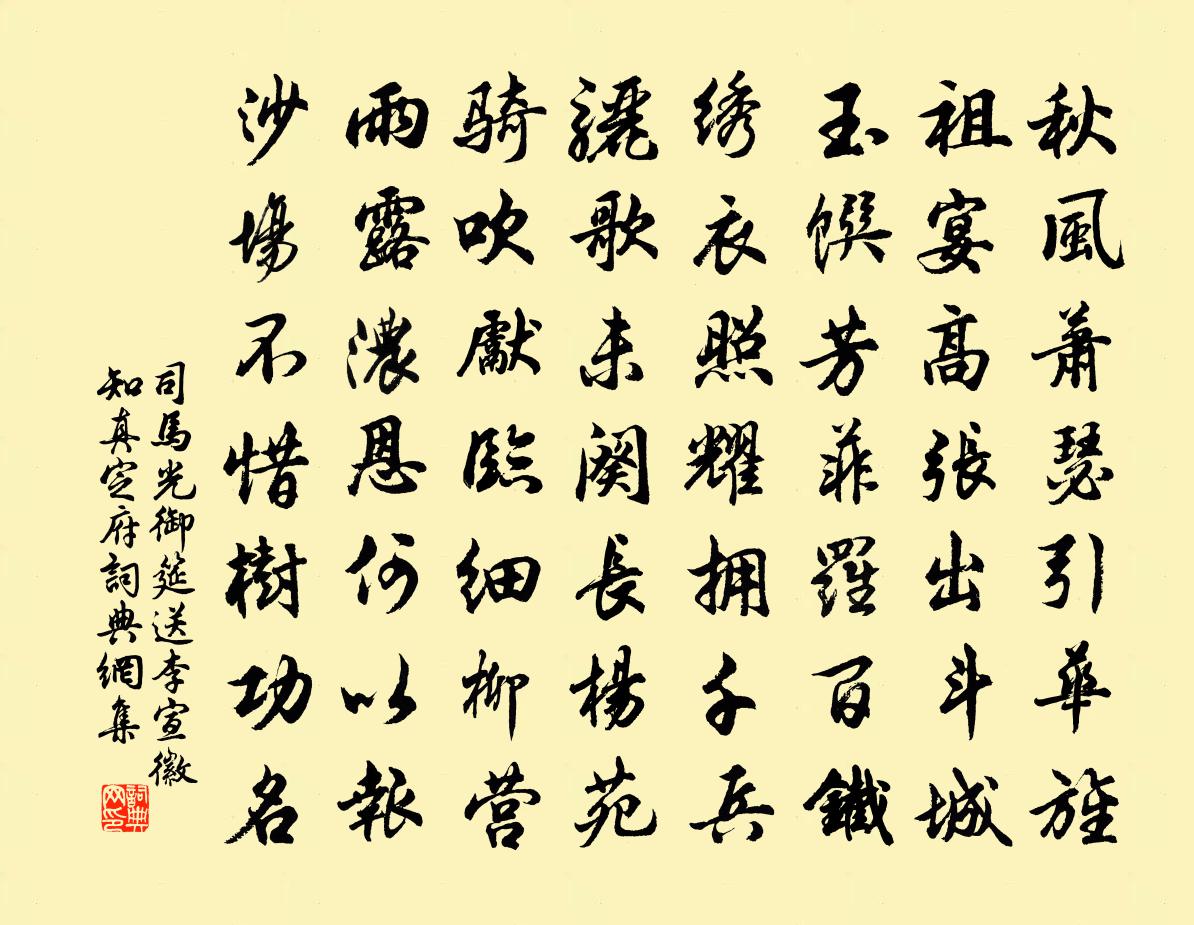 秋風蕭瑟引華旌
祖宴高張出斗城
玉馔芳菲羅百鐵
绣衣照耀拥千兵
驪歌未阕長楊苑
骑吹獻臨细柳营
雨露濃恩何以報
沙場不惜樹功名
司馬光御筵送李宣徽
知真定府詞典網集
詞典网印